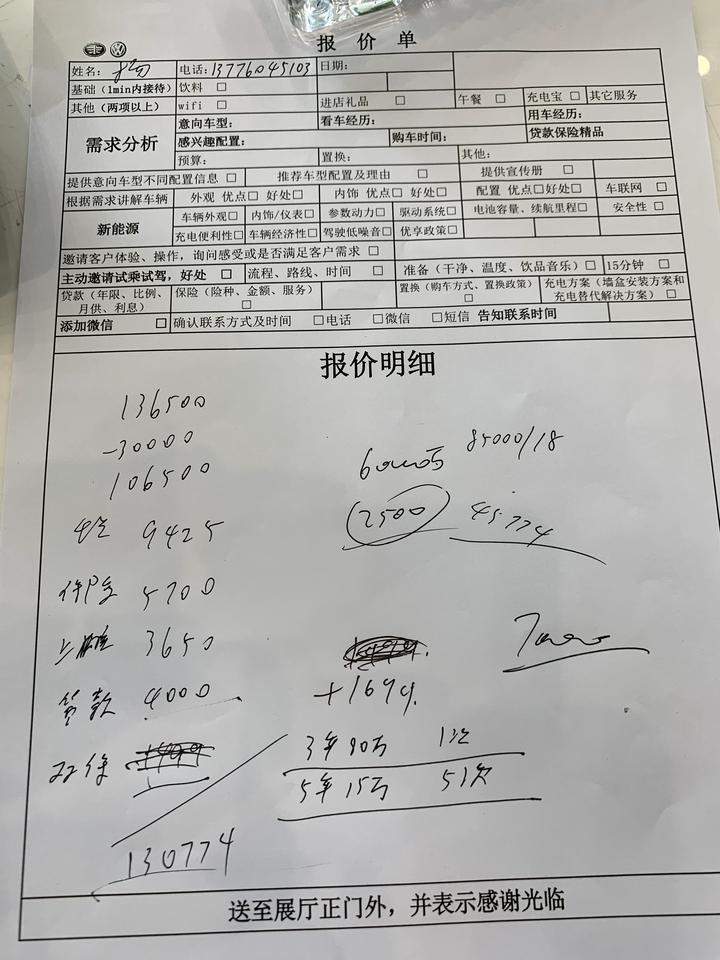 报价单
姓名： 杨 电话：13776045103 日期：
基础（1min内接待） 饮料 □
其他（两项以上） wifi □ 进店礼品 □ 午餐 □ 充电宝 □ 其它服务
需求分析 意向车型： 看车经历： 用车经历：
感兴趣配置： 购车时间： 贷款保险精品
预算： 置换： 其他：
提供意向车型不同配置信息 □ 推荐车型配置及理由 □ 提供宣传册 □
根据需求讲解车辆 外观 优点□ 好处□ 内饰 优点□ 好处□ 配置 优点□好处□ 车联网 □
新能源 车辆外观□ 内饰/仪表□ 参数动力□ 驱动系统□ 电池容量、续航里程□ 安全性 □
充电便利性□ 车辆经济性□ 驾驶低噪音□ 优享政策□
邀请客户体验、操作，询问感受或是否满足客户需求 □
主动邀请试乘试驾，好处 □ 流程、路线、时间 □ 准备（干净、温度、饮品音乐）□ 15分钟 □
贷款（年限、比例、月供、利息） 保险（险种、金额、服务）□ 置换（购车方式、置换政策）□ 充电方案（墙盒安装方案和充电替代解决方案）□
添加微信 □ 确认联系方式及时间 □电话 □微信 □短信 告知联系时间
报价明细
136500
-30000
106500
85000/18
9425
2500 45774
5700
3650
贷款 4000
+1699
3年 1次
双保
5年 15万 51次
130774
送至展厅正门外，并表示感谢光临